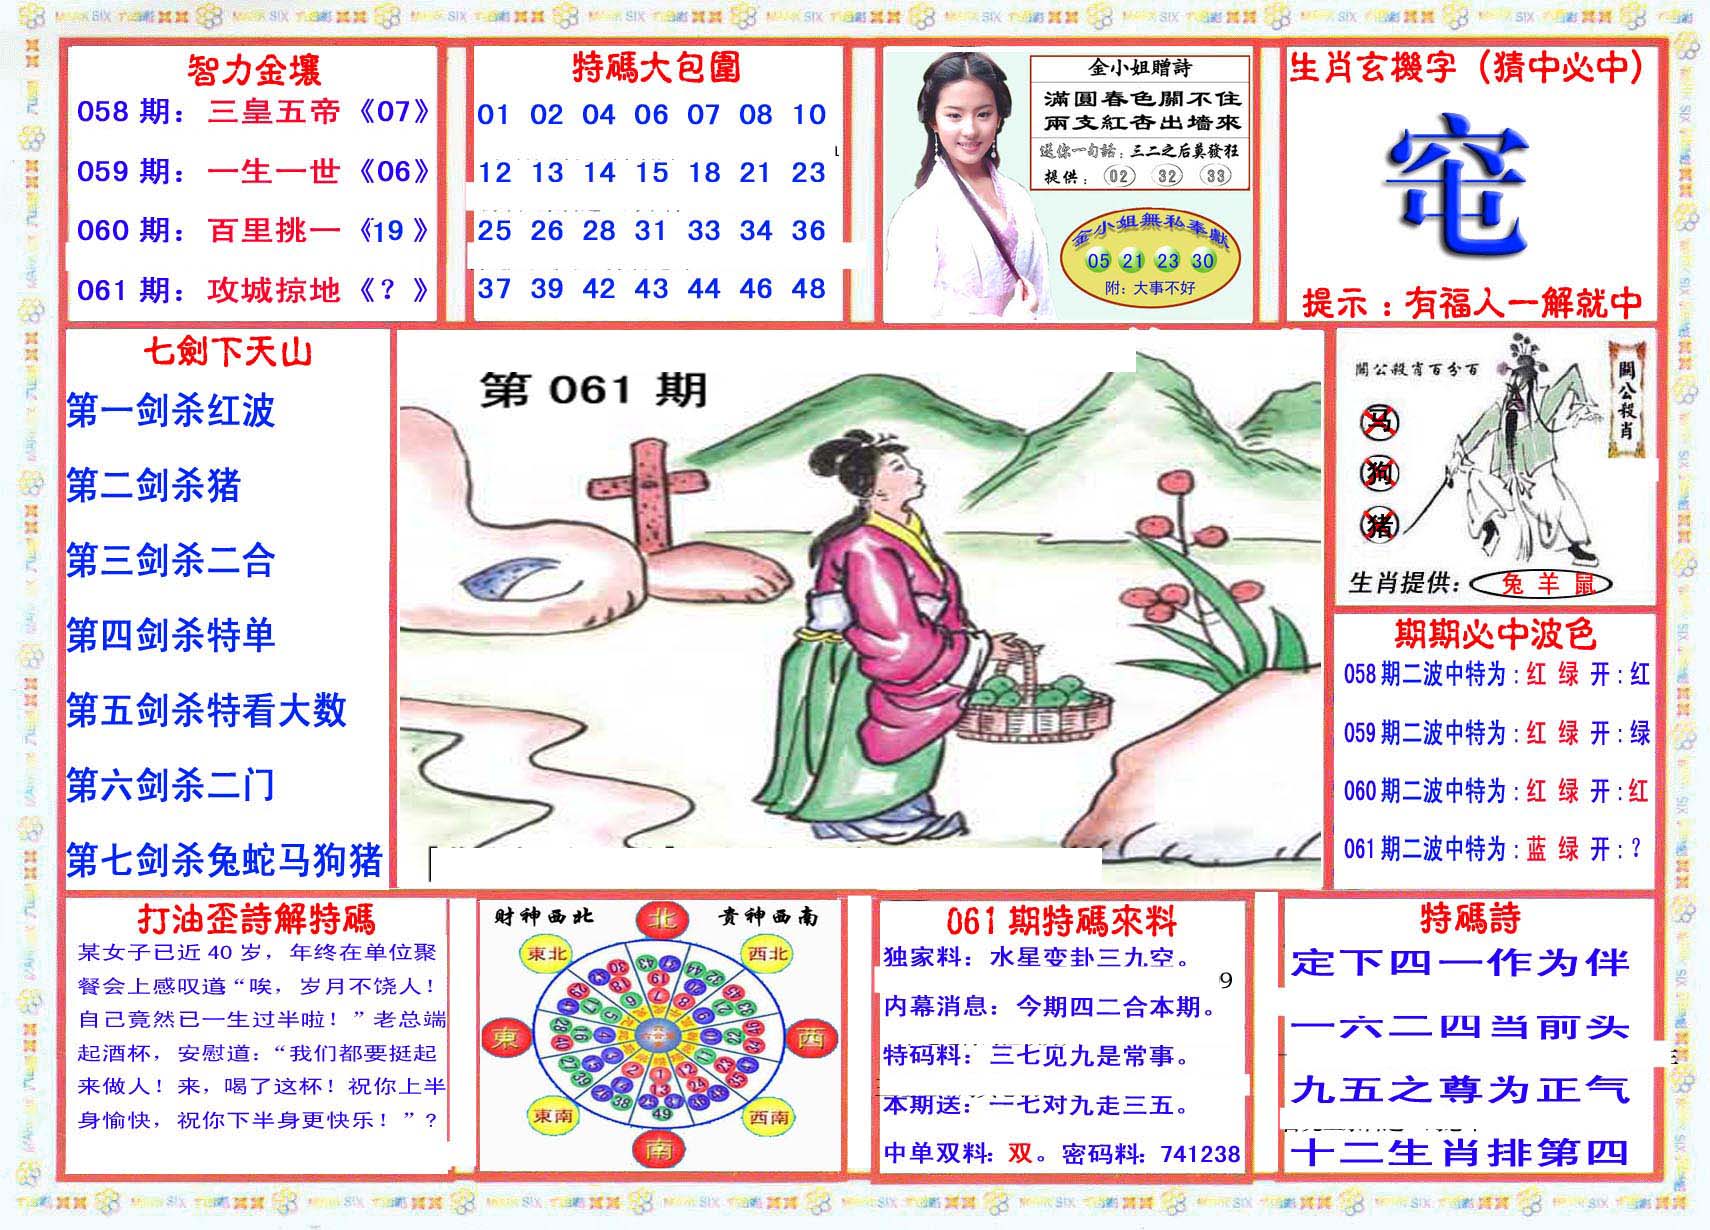 智力金壤
058 期： 三皇五帝《07》
059 期： 一生一世《06》
060 期： 百里挑一《19 》
061 期： 攻城掠地《？ 》
特碼大包圍
01 02 04 06 07 08 10
12 13 14 15 18 21 23
25 26 28 31 33 34 36
37 39 42 43 44 46 48
金小姐贈詩
滿圓春色關不住
兩支紅杏出墻來
送你一句話：三二之后莫發狂
提供： 02 32 33
金小姐無私奉獻
05 21 23 30
附：大事不好
生肖玄機字（猜中必中）
提示：有福人一解就中
七劍下天山
第一剑杀红波
第二剑杀猪
第三剑杀二合
第四剑杀特单
第五剑杀特看大数
第六剑杀二门
第七剑杀兔蛇马狗猪
第 061 期
關公殺肖百分百
關公殺肖
马
狗
猪
生肖提供： 兔 羊 鼠
期期必中波色
058 期二波中特为：红 绿 开：红
059 期二波中特为：红 绿 开：绿
060 期二波中特为：红 绿 开：红
061 期二波中特为：蓝 绿 开：？
打油歪詩解特碼
某女子已近 40 岁，年终在单位聚
餐会上感叹道“唉，岁月不饶人！
自己竟然已一生过半啦！”老总端
起酒杯，安慰道：“我们都要挺起
来做人！来，喝了这杯！祝你上半
身愉快，祝你下半身更快乐！”？
財神西北
貴神西南
北
東北
西北
東
西
東南
西南
南
061 期特碼來料
独家料：水星变卦三九空。
9
内幕消息：今期四二合本期。
特码料：三七见九是常事。
本期送：一七对九走三五。
中单双料：双。密码料：741238
特碼詩
定下四一作为伴
一六二四当前头
九五之尊为正气
十二生肖排第四